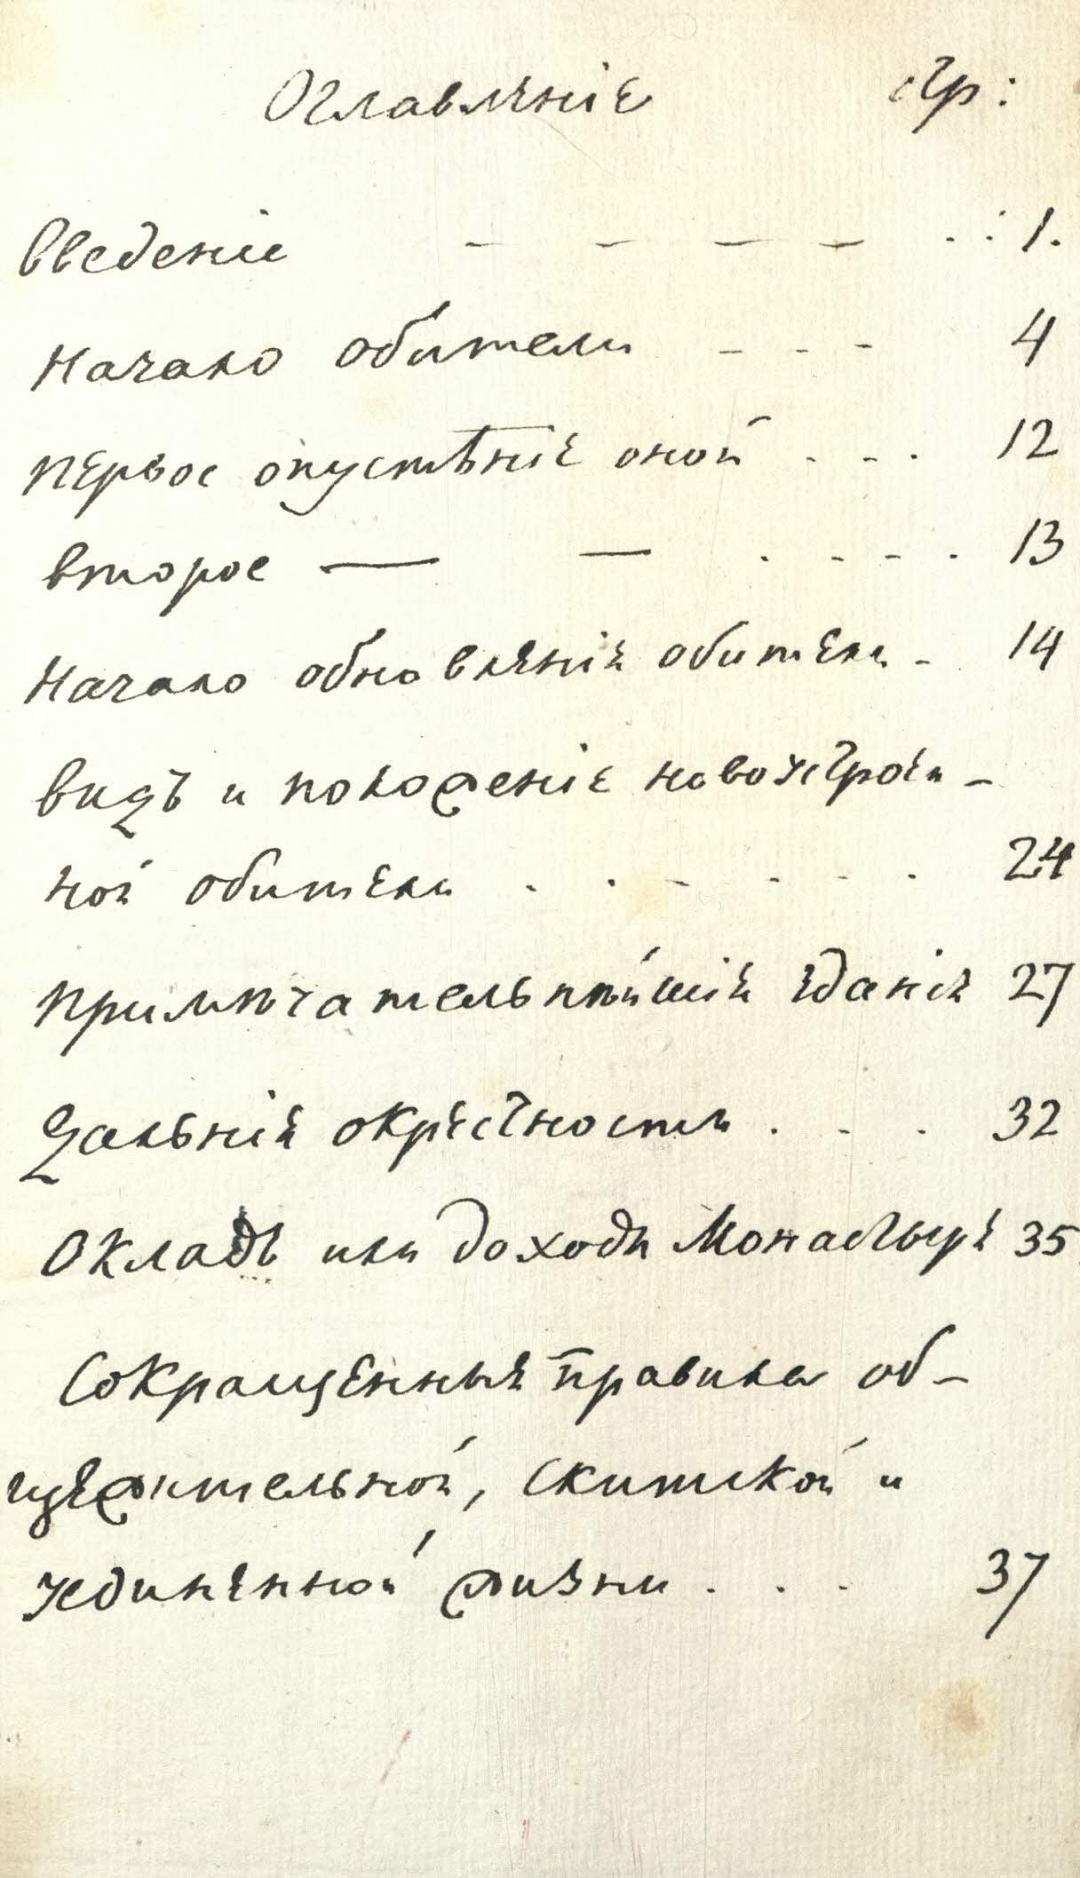 Оглавленіе стр:
Введеніе - - - - . . 1.
Начало обители - - - 4
Первое опустѣніе оной . - . 12
второе — — . - - . 13
Начало обновленія обители - 14
видъ и положеніе новоустроен-
ной обители . . - . . . 24
Примѣчательнѣйшія зданія 27
Дальнія окрестности . - . 32
Окладъ или доходы Монастыря 35
Сокращенныя правила об-
щежительной, скитской и
уединенной жизни . . . 37